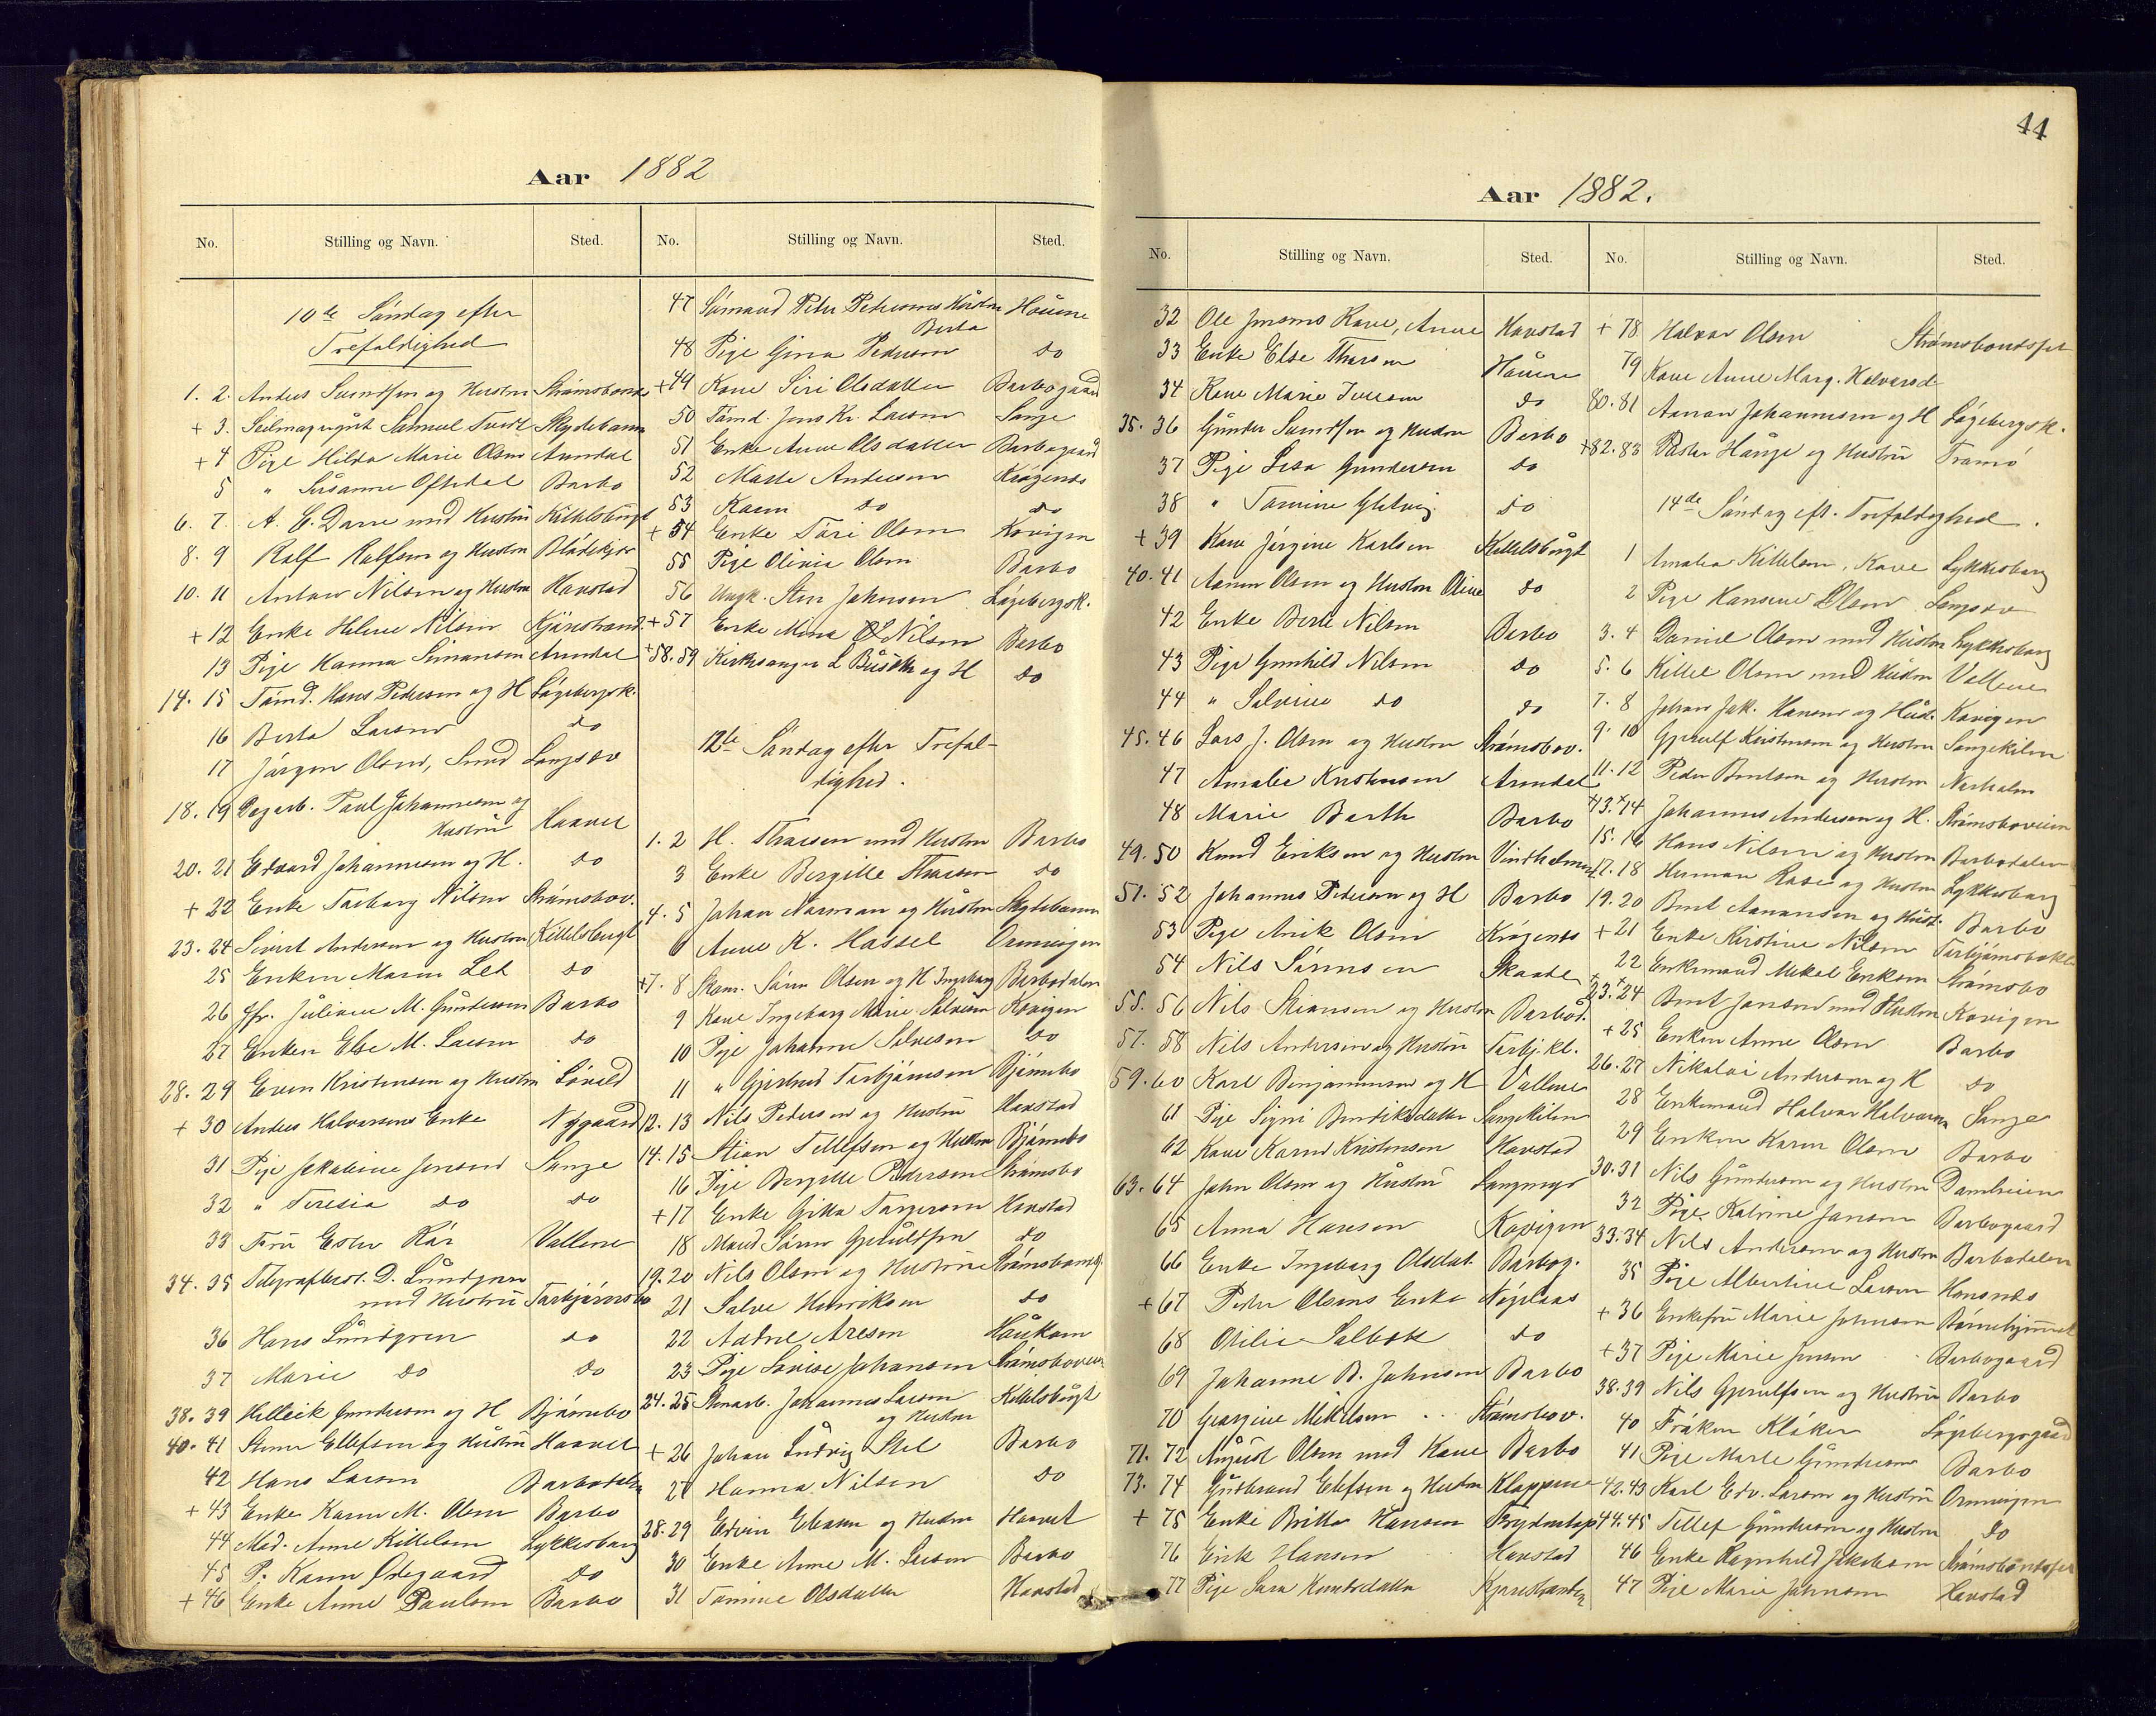 Aar 1882
No. Stilling og Navn. Sted.
10de Søndag efter
Trefoldighed
1. 2. Anders Sundsen og Hustru Strømsbonde
+ 3. Seilmagergut Samuel Tvedt Skydebanen
+ 4 Pige Hilda Marie Olsen Arendal
5 " Susanne Oftedal Barbo
6. 7. A. E. Darre med Hustru Kittelsbugt
8. 9 Ralf Ralfsen og Hustru Blødekjær
10. 11 Anton Nilsen og Hustru Havstad
+ 12 Enke Helene Nilsen Kjønstrand
13 Pige Hanna Simonsen Arendal
14. 15 Tømd. Hans Pedersen og H Løgebergsk.
16 Berta Larsen do
17 Jørgen Olsen, Smed Langsæv
18. 19 Dagarb. Paul Johannesen og
Hustru Haavet
20. 21 Edvard Johannesen og H. do
+ 22 Enke Torborg Nilsen Strømsbov.
23. 24 Sivert Andersen og Hustru Kittelsbugt
25 Enken Maren Let do
26 Jfr. Juliane M. Gundersen Barbo
27 Enken Else M. Larsen do
28. 29 Even Kristensen og Hustru Løvold
+ 30 Anders Halvorsens Enke Nygaard
31 Pige Jakobine Jensen Sange
32 " Teresia do do
33 Fru Ester Kår Vallene
34. 35 Telegrafbest. D. Lundgren
med Hustru Torbjørnsbo
36 Hans Lundgren do
37 Marie do do
38. 39 Helleik Gundersen og H Bjønnebo
40. 41 Steen Ellefsen og Hustru Haavet
42 Hans Larsen Barbodalen
+ 43 Enke Karen M. Olsen Barbo
44 Mad. Anne Kittelsen Lykkesborg
45 P. Karen Ødegaard do
+ 46 Enke Anne Paulsen Barbo
No. Stilling og Navn. Sted.
47 Sømand Peter Pedersens Hustru Houene
Berta
48 Pige Gina Pedersen do
+ 49 Kone Siri Olsdatter Barbogaard
50 Tømd. Jens Kr. Larsen Sange
51 Enke Anne Olsdatter Barbogaard
52 Marte Andersen Krøgenes
53 Karen do do
+ 54 Enke Tori Olsen Kovigen
55 Pige Olivia Olsen Barbo
56 Ungk. Sten Johnsen Løgebergsk.
+ 57 Enke Mina Nilsen Barbo
+ 58. 59 Kirkesanger L Buseth og H do
12te Søndag efter Trefol-
dighed.
1. 2 H. Thorsen med Hustru Barbo
3 Enke Bergitte Thorsen do
4. 5 Johan Norman og Hustru Skytebanen
6 Anne K. Hassel Ormvigen
+7. 8 Skom. Søren Olsen og H Ingeborg Barbodalen
9 Kone Ingeborg Marie Salvesen Kovigen
10 Pige Johanne Salvesen do
11 " Gjertrud Torbjørnsen Bjønnebo
12. 13 Nils Pedersen og Hustru Havstad
14. 15 Stian Tellefsen og Hustru Bjønnebo
16 Pige Bergitte Pedersen Strømsbo
+ 17 Enke Gitta Torgersen Havstad
18 Mand Søren Gjeruldsen do
19. 20 Nils Olsen og Hustru Strømsbonds.
21 Salve Henriksen do
22 Aadne Aresen Haukom
23 Pige Lovise Johansen Strømsboveien
24. 25 Stenarb. Johannes Larsen Kittelsbugt
og Hustru
+ 26 Johan Ludvig Stel Barbo
27 Hanna Nilsen do
28. 29 Edvin Eliasen og Hustru Haavet
30 Enke Anne M. Larsen Barbo
31 Tomine Olsdatter Havstad
44
Aar 1882.
No. Stilling og Navn. Sted.
32 Ole Jensens Kone, Anne Havstad
33 Enke Else Thorsen Houene
34 Kone Marie Iversen do
35. 36 Gunder Sundsen og Hustru Barbo
37 Pige Lesa Gundersen do
38 " Tomine do
+ 39 Kone Jørgine Karlsen Kittelsbugt
40. 41 Aanen Olsen og Hustru Oline do
42 Enke Berte Nilsen Barbo
43 Pige Gunhild Nilsen do
44 " Salvine do do
45. 46 Lars J. Olsen og Hustru Strømsbov.
47 Amalia Kristensen Arendal
48 Marie Barth Barbo
49. 50 Knud Eriksen og Hustru Vindholmen
51. 52 Johannes Pedersen og H Barbo
53 Pige Anik Olsen Krøgenes
54 Nils Sørensen Skaate
55. 56 Nils Stiansen og Hustru Barbod.
57. 58 Nils Andersen og Hustru Torbj.kl.
59. 60 Karl Benjaminsen og H Vallene
61 Pige Signi Bendiksdatter Sangekilen
62 Kone Karen Kristensen Havstad
63. 64 John Olsen og Hustru Langmyr
65 Anna Hansen Kovigen
66 Enke Ingeborg Olsdat. Barbog.
+ 67 Peter Olsens Enke Nøgelaas
68 Otilie Salbok do
69 Johanne B. Johnsen Barbo
70 Georgine Mikkelsen Strømsbov.
71. 72 August Olsen med Kone Barbo
73. 74 Gudbrand Elefsen og Hustru Kloppene
+ 75 Enke Britta Hansen Brydestap
76 Erik Hansen Havstad
77 Pige Sara Knudsdatter Kjønstranden
No. Stilling og Navn. Sted.
+ 78 Halvor Olsen Strømsbondsfet
79 Kone Anne Marg. Halvorsd.
80. 81 Aanon Johannesen og H Løgebergsk.
+82. 83 Pastor Hauge og Hustru Tromø
14de Søndag eft. Trefoldighed.
1 Amalia Kittelsen, Kone Lykkesborg
2 Pige Hansine Olsen Langsæv
3. 4 Daniel Olsen med Hustru Lykkesborg
5. 6 Kittel Olsen med Hustru Vallene
7. 8 Johan Jak. Hansen og Hust. Kovigen
9. 10 Gjerulf Kristensen og Hustru Sangekilen
11. 12 Peder Berntsen og Hustru Narholm
+13.+14 Johannes Andersen og H. Strømsboveien
15. 16 Hans Nilsen og Hustru Barbodalen
17. 18 Herman Rase og Hustru Lykkesborg
19. 20 Bent Aanonsen og Hust. Barbo
+ 21 Enke Kirstine Nilsen Torbjørnsbokl.
22 Enkemand Mikal Eriksen Strømsbo
+23.+24 Bent Jensen med Hustru Kovigen
+ 25 Enken Anne Olsen Barbo
26. 27 Nikolai Andersen og H do
28 Enkemand Halvor Halvorsen Sange
29 Enken Karen Olsen Barbo
30. 31 Nils Gundersen og Hustru Damleien
32 Pige Katrine Jansen Barbogaard
33. 34 Nils Andersen og Hustru Barbodalen
35 Pige Albertine Larsen Hansnes
+ 36 Enkefru Marie Johnsen Børnehjemmet
+ 37 Pige Marie Jensen Barbogaard
38. 39 Nils Gjerulfsen og Hustru Barbo
40 Frøken Kløker Løgebergsgaard
41 Pige Marte Gundersen Barbo
42. 43 Karl Edv. Larsen og Hustru Ormvigen
44. 45 Tellef Gundersen og Hustru do
46 Enke Ragnhild Jakobsen Strømsbondsfet
47 Pige Marie Johnsen Havstad